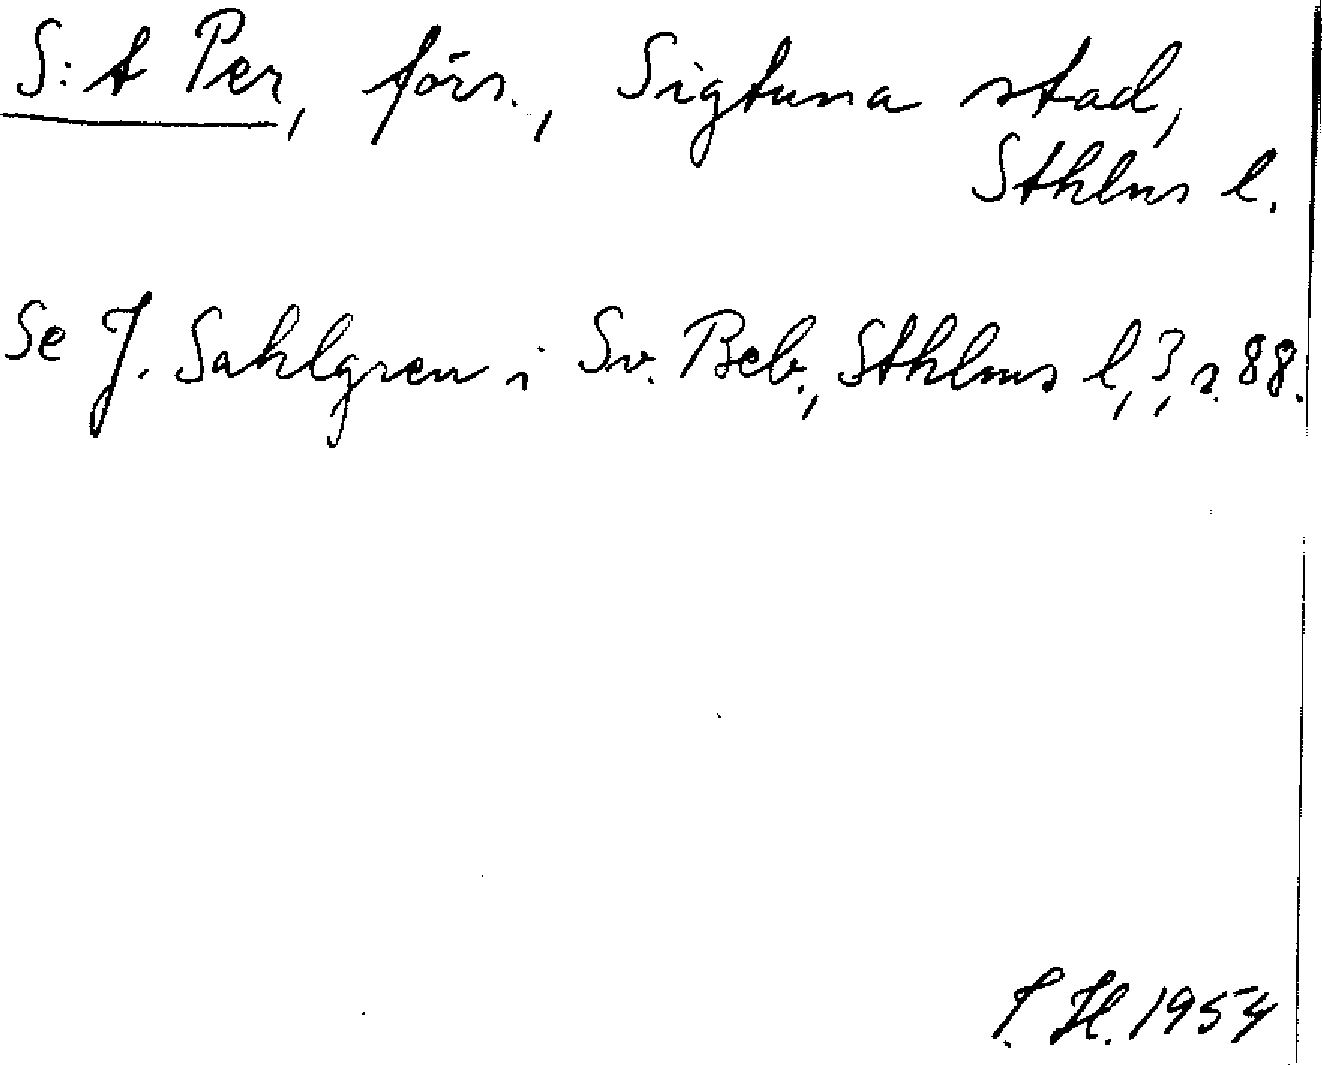 S:t Per, förs., Sigtuna stad,
Sthlms l.
Se J. Sahlgren i Sv. Beb., Sthlms l, 3, s. 88.
H. 1954